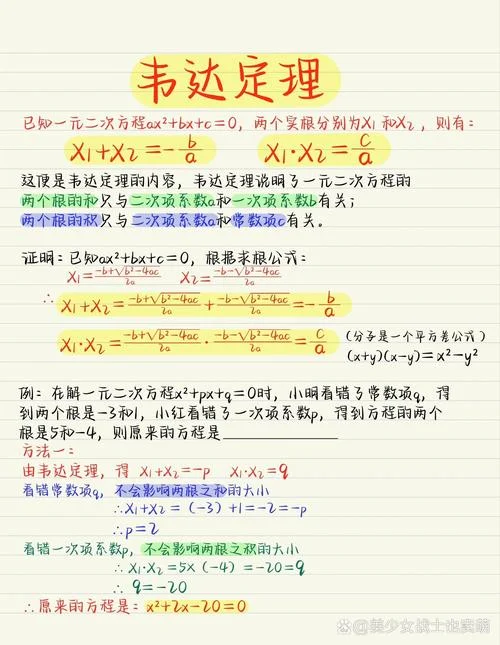 韦达定理
已知一元二次方程ax²+bx+c=0，两个实根分别为X₁和X₂，则有：
X₁+X₂=-b/a X₁·X₂=c/a
这便是韦达定理的内容，韦达定理说明了一元二次方程的
两个根的和只与二次项系数a和一次项系数b有关；
两个根的积只与二次项系数a和常数项c有关。
证明：已知ax²+bx+c=0，根据求根公式：
X₁=(-b+√(b²-4ac))/2a X₂=(-b-√(b²-4ac))/2a
∴X₁+X₂=(-b+√(b²-4ac))/2a+(-b-√(b²-4ac))/2a=-b/a
X₁·X₂=(-b+√(b²-4ac))/2a·(-b-√(b²-4ac))/2a=c/a
（分子是一个平方差公式）
(x+y)(x-y)=x²-y²
例：在解一元二次方程x²+px+q=0时，小明看错了常数项q，得
到两个根是-3和1，小红看错了一次项系数p，得到方程的两个
根是5和-4，则原来的方程是____________
方法一：
由韦达定理，得 X₁+X₂=-p X₁·X₂=q
看错常数项q，不会影响两根之和的大小
∴X₁+X₂=（-3）+1=-2=-p
∴p=2
看错一次项系数p，不会影响两根之积的大小
∴X₁·X₂=5×（-4）=-20=q
∴ q=-20
∴原来的方程是：x²+2x-20=0
@美少女战士也卖萌